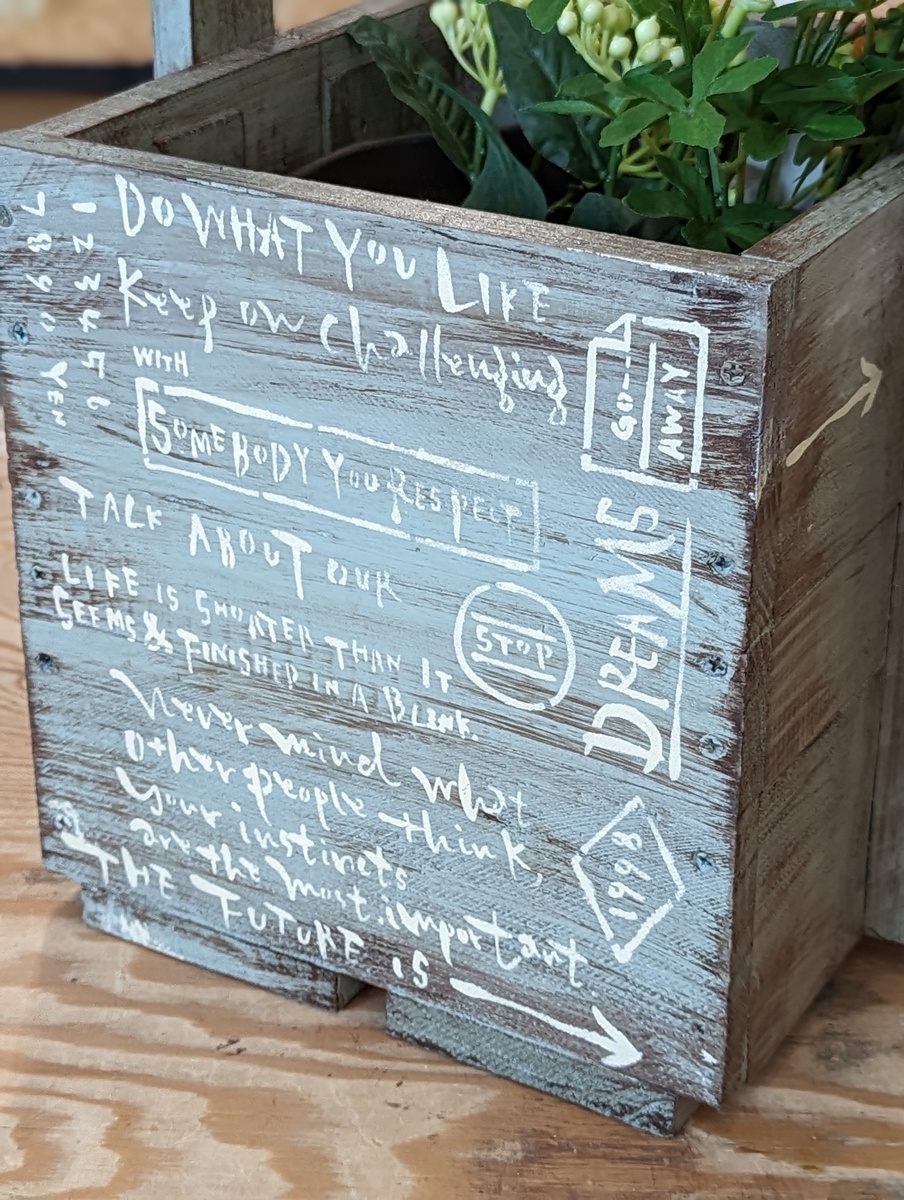 DO WHAT YOU LIKE
Keep on challenging
WITH
SOMEBODY YOU RESPECT
TALK ABOUT OUR
DREAMS
LIFE IS SHORTER THAN IT
SEEMS & FINISHED IN A BLINK.
STOP
Never mind what
other people think,
your instincts
are the most important
THE FUTURE IS →
GO
AWAY
1998
1 2 3 4 5 6
7 8 9 0 YEN